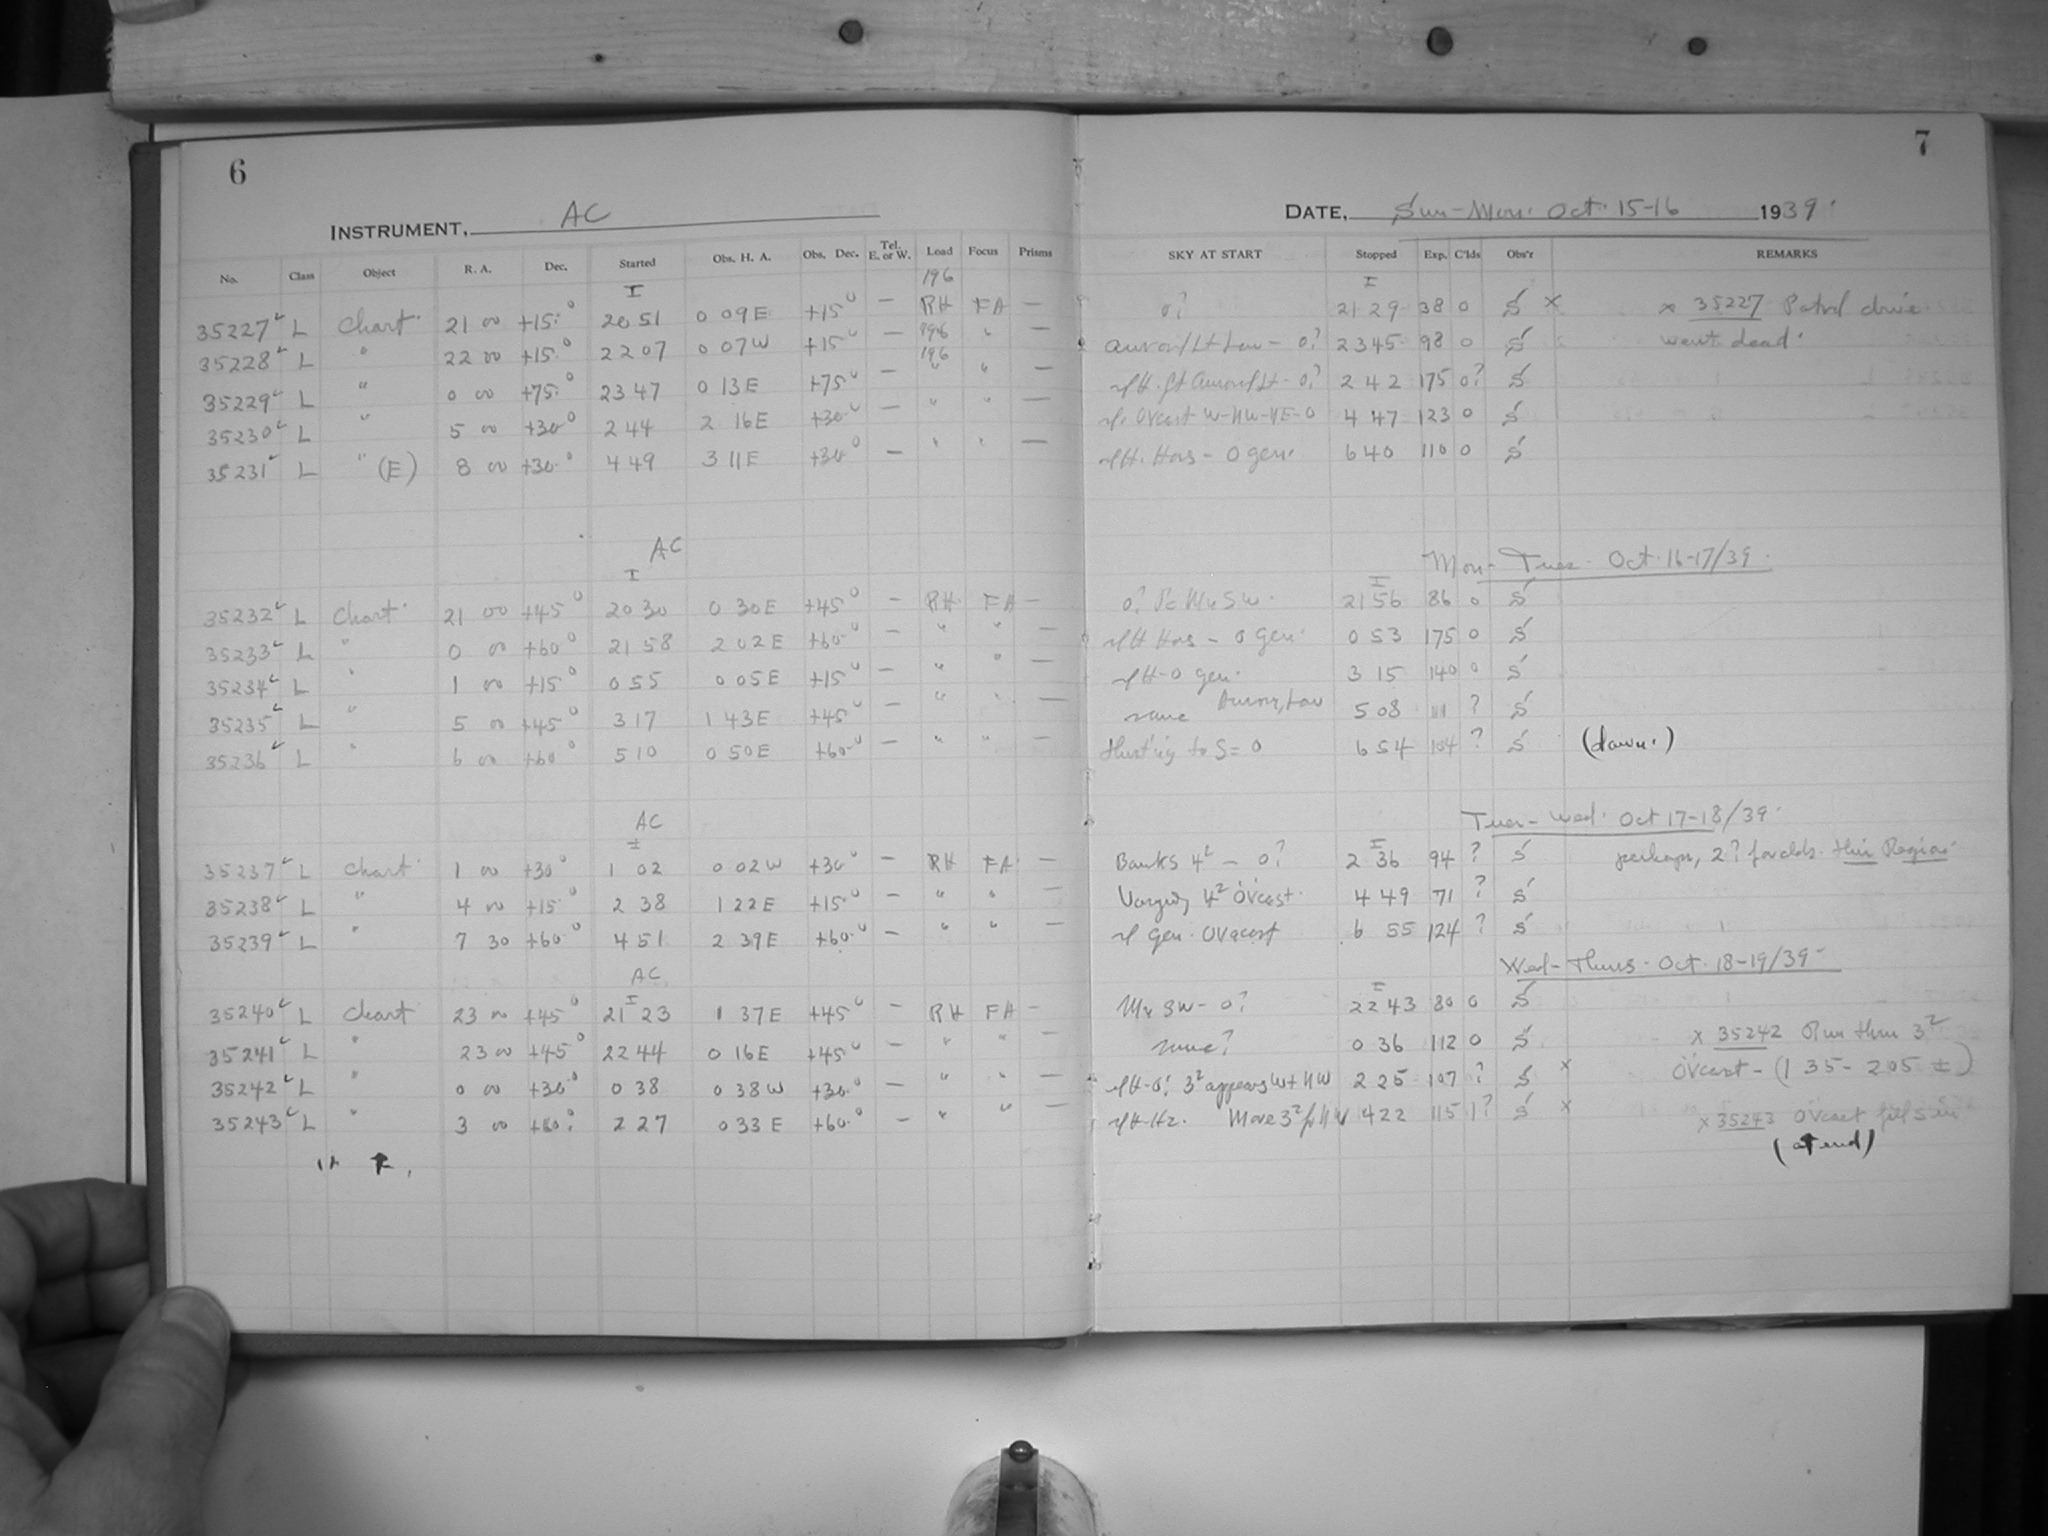 6
7
INSTRUMENT, AC
DATE, Sun-Mon. Oct. 15-16 1939.
No. Class Object R. A. Dec. Started Obs. H. A. Obs. Dec. Tel. E. or W. Load Focus Prisms SKY AT START Stopped Exp. C'lds Obs'r REMARKS
I 196 I
35227 L Chart. 21 00 +15° 20 51 0 09 E +15° — RH FA — 0? 21 29 38 0 S x x 35227 Patrol drive
35228 L " 22 00 +15° 22 07 0 07 W +15° — 196 " — Low - 0? 23 45 98 0 S went dead.
35229 L " 0 00 +75° 23 47 0 13 E +75° — " " — 2 42 175 0? S
35230 L " 5 00 +30° 2 44 2 16 E +30° — " " — Ovcast W-NW-NE-0 4 47 123 0 S
35231 L " (E) 8 00 +30° 4 49 3 11 E +30° — " " — 0 gen. 6 40 110 0 S
AC Mon-Tues. Oct. 16-17/39.
I I
35232 L Chart. 21 00 +45° 20 30 0 30 E +45° — RH FA — 0? SW. 21 56 86 0 S
35233 L " 0 00 +60° 21 58 2 02 E +60° — " " — 0 gen. 0 53 175 0 S
35234 L " 1 00 +15° 0 55 0 05 E +15° — " " — 0 gen. 3 15 140 0 S
35235 L " 5 00 +45° 3 17 1 43 E +45° — " " — same Auror, Low 5 08 111 ? S
35236 L " 6 00 +60° 5 10 0 50 E +60° — " " — to S = 0 6 54 104 ? S (dawn.)
AC Tues-Wed. Oct 17-18/39.
I I
35237 L Chart. 1 00 +30° 1 02 0 02 W +30° — RH FA — Banks 4² - 0? 2 36 94 ? S perhaps, 2? for clds. this Region.
35238 L " 4 00 +15° 2 38 1 22 E +15° — " " — Varying 4² Ovcast. 4 49 71 ? S
35239 L " 7 30 +60° 4 51 2 39 E +60° — " " — gen. Ovcast 6 55 124 ? S
AC Wed-Thurs. Oct. 18-19/39
I I
35240 L Chart 23 00 +45° 21 23 1 37 E +45° — RH FA — SW - 0? 22 43 80 0 S
35241 L " 23 00 +45° 22 44 0 16 E +45° — " " — same? 0 36 112 0 S x 35242 Run thru 3²
35242 L " 0 00 +30° 0 38 0 38 W +30° — " " — 3² appears W + NW 2 25 107 ? S x Ovcast - (1 35 - 2 05 ±)
35243 L " 3 00 +60° 2 27 0 33 E +60° — " " — Hz. More 3² 4 22 115 1? S x x 35243 Ovcast fills in
(at end)